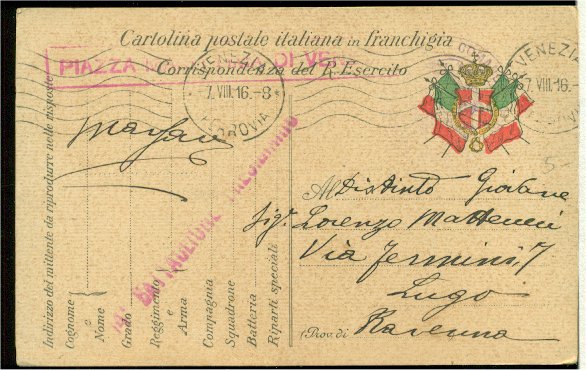 Cartolina postale italiana in franchigia
Corrispondenza del R. Esercito
PIAZZA MARITTIMA DI VE
VENEZIA
7.VIII.16-8
FERROVIA
VENEZIA
7.VIII.16-
Indirizzo del mittente da riprodurre nelle risposte
Cognome
e
Nome
Grado
Reggimento
e
Arma
Compagnia
Squadrone
Batteria
Riparti speciali
BATTAGLIONE PRESIDIARIO
Al Distinto Giovane
Sigr. Lorenzo Matteucci
Via Fermini, 7
Lugo
(Prov. di Ravenna
5-